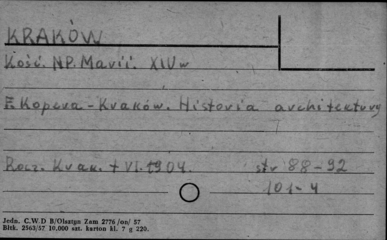 KRAKÓW
Kość. NP. Marii. XIV w
F. Kopera - Kraków. Historia architektury
Rocz. Krak. t VI. 1904. str 88-92
101-4
Jedn. C.W.D B/Olsztyn Zam 2776 /oo/ 57
Bltk. 2563/57 10,000 szt. karton kl. 7 g 220.